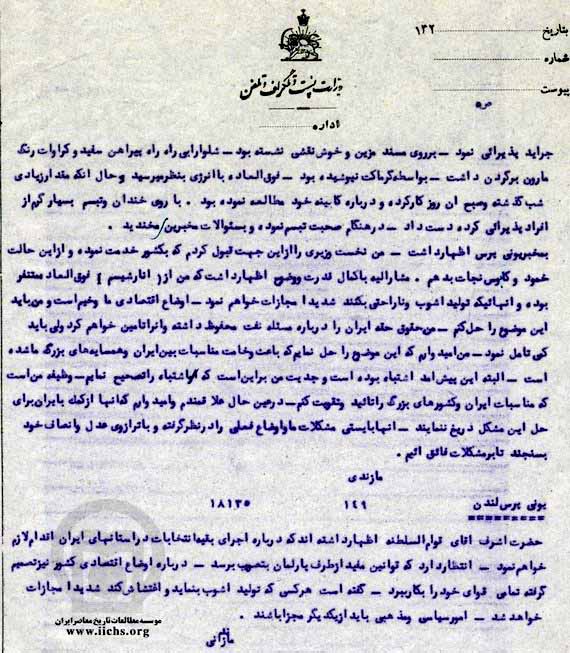 بتاریخ ۱۳۲
شماره
پیوست
وزارت پست و تلگراف و تلفن
اداره
جراید پذیرائی نمود – برروی مسند مزین و خوش نقشی نشسته بود – شلوارابی راه راه پیراهن سفید و کراوات رنگ
مارون برگردن داشت – بواسطه گرما کت نپوشیده بود – فوق‌العاده با انرژی بنظر میرسید و حال انکه مقدار زیادی
شب گذشته و صبح ان روز کار کرده و درباره کابینه خود مطالعه نموده بود . با روی خندان و تبسم بسیار گرم از
افراد پذیرائی کرده دست داد – در هنگام صحبت تبسم نموده و بسئوالات مخبرین میخندید .
بمخبر یونی پرس اظهار داشت – من نخست وزیری را از این جهت قبول کردم که بکشور خدمت نموده و از این حالت
خمود و کابوس نجات بدهم . مشارالیه با کمال قدرت و وضوح اظهار داشت که من از ( انارشیسم ) فوق‌العاد متنفر
بوده و انهائیکه تولید اشوب و ناراحتی بکنند شدیدا مجازات خواهم نمود – اوضاع اقتصادی ما وخیم است و من باید
این موضوع را حل کنم – من حقوق حقه ایران را درباره مسئله نفت محفوظ داشته و انرا تامین خواهم کرد ولی باید
کمی تامل نمود – من امیدوارم که این موضوع را حل نمایم که باعث وخامت مناسبات بین ایران و همسایه‌های بزرگ ما شده
است – البته این پیش امد اشتباه بوده است و جدیت من براین است که اشتباه را تصحیح نمایم – وظیفه من است
که مناسبات ایران و کشورهای بزرگ را تائید و تقویت کنم – در عین حال علاقمندم و امیدوارم که انها از کمک بایران برای
حل این مشکل دریغ ننمایند – انها بایستی مشکلات ما و اوضاع فعلی را در نظر گرفته و با ترازوی عدل و انصاف خود
بسنجند تا بر مشکلات فائق ائیم .
مازندی
یونی پرس لندن ۱۴۹ ۱۸۱۳۵
حضرت اشرف اقای قوام السلطنه اظهار داشته اند که درباره اجرای بقیه انتخابات در استانهای ایران اقدام لازم
خواهم نمود – انتظار دارد که قوانین مفید از طرف پارلمان بتصویب برسد – درباره اوضاع اقتصادی کشور نیز تصمیم
گرفته تمامی قوای خود را بکار ببرد – گفته است هر کسی که تولید اشوب بنماید و اغتشاش کند شدیدا مجازات
خواهد شد – امور سیاسی و مذهبی باید از یکدیگر مجزا باشند .
مازندی
موسسه مطالعات تاریخ معاصر ایران
www.iichs.org